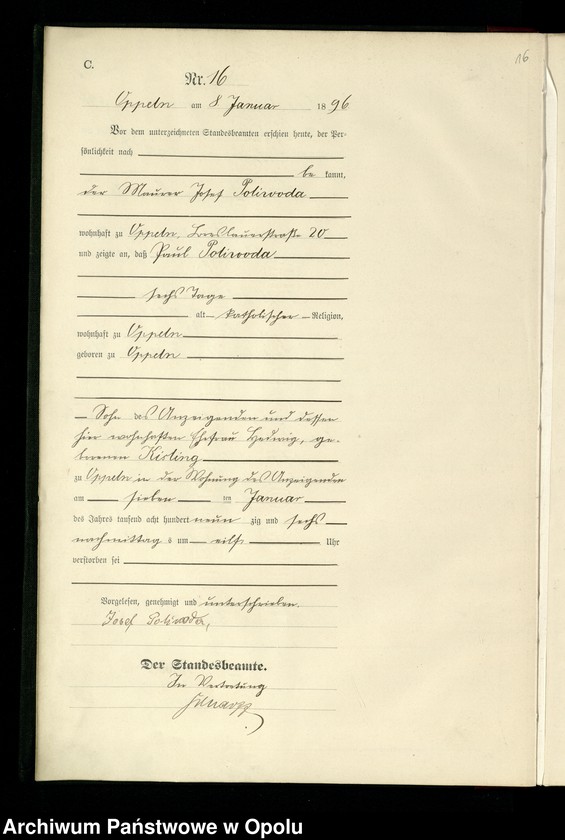 16
C.
Nr. 16
Oppeln am 8 Januar 1896
Vor dem unterzeichneten Standesbeamten erschien heute, der Per-
sönlichkeit nach
be kannt,
der Maurer Josef Poliwoda
wohnhaft zu Oppeln, Breslauerstraße 20
und zeigte an, daß Paul Poliwoda
sechs Tage
alt katholischer Religion,
wohnhaft zu Oppeln
geboren zu Oppeln
Sohn des Anzeigenden und dessen
hier wohnhaften Ehefrau Hedwig, ge-
borenen Kisling
zu Oppeln in der Wohnung des Anzeigenden
am sieben ten Januar
des Jahres tausend acht hundert neun zig und sechs
nachmittag s um eilf Uhr
verstorben sei
Vorgelesen, genehmigt und unterschrieben.
Josef Poliwoda,
Der Standesbeamte.
In Vertretung
Archiwum Państwowe w Opolu